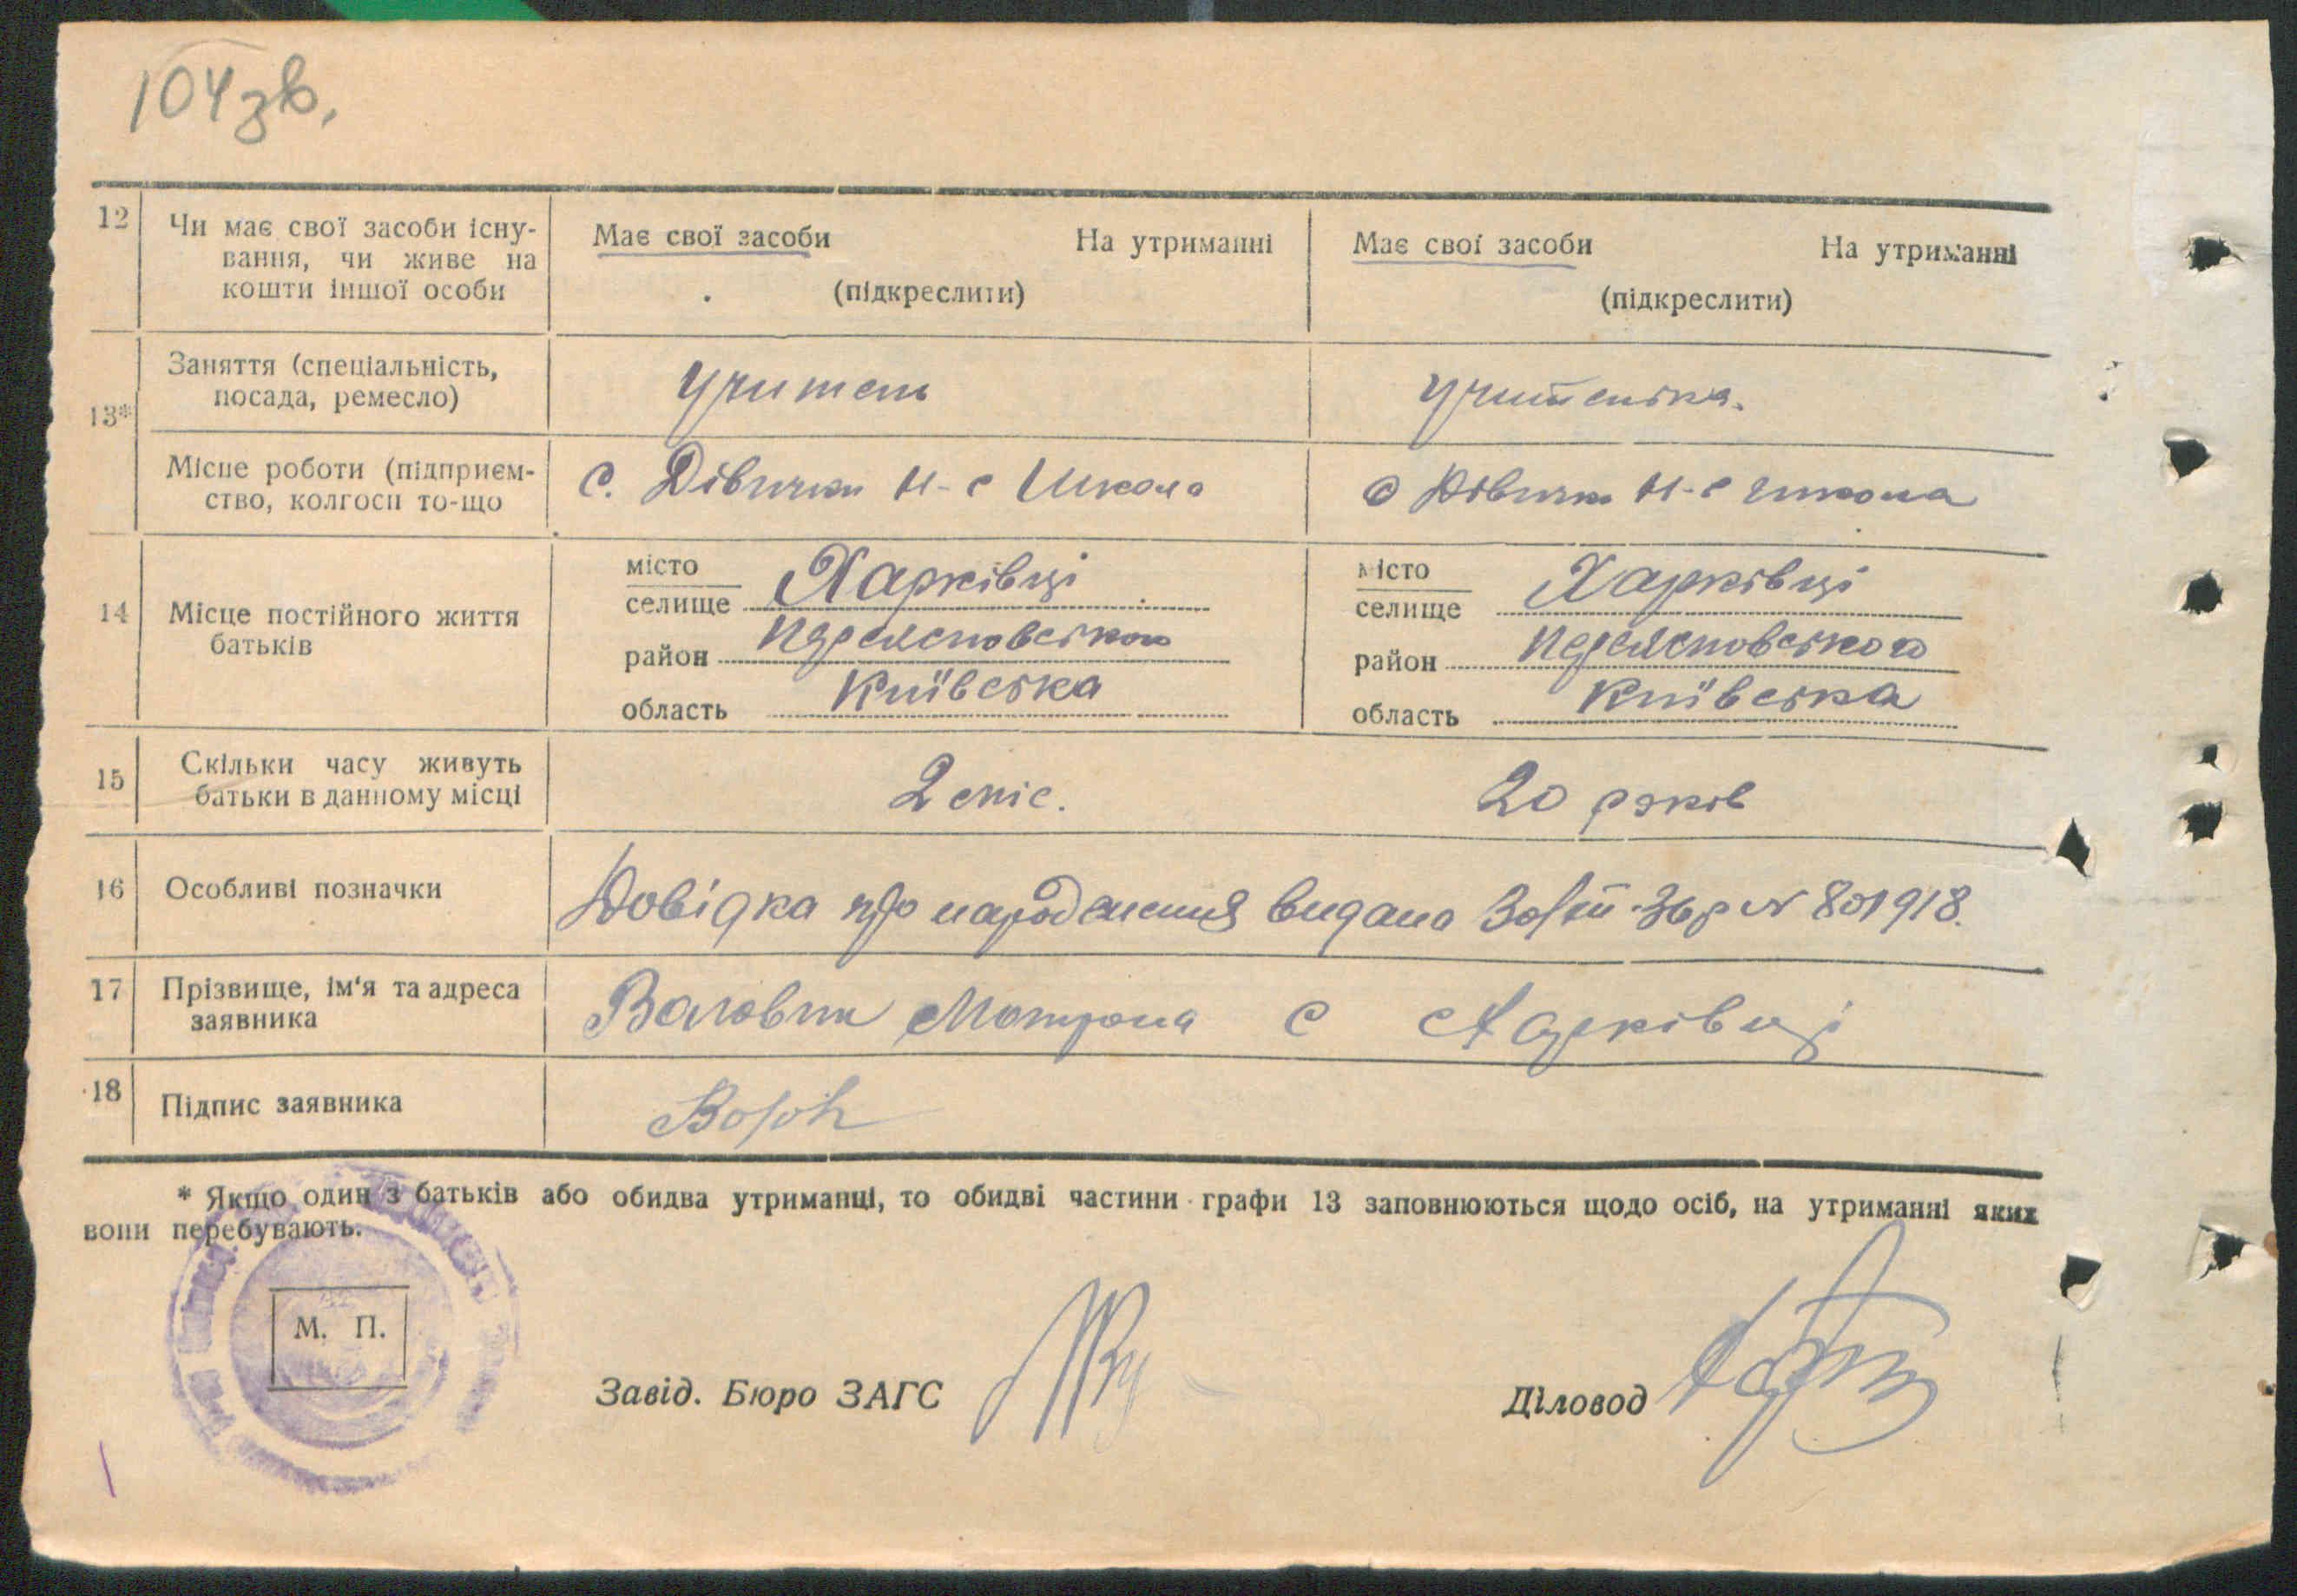 104 зв.
12 Чи має свої засоби існу-
вання, чи живе на
кошти іншої особи
Має свої засоби На утриманні
(підкреслити)
Має свої засоби На утриманні
(підкреслити)
13* Заняття (спеціальність,
посада, ремесло)
Учитель
Учителька.
Місце роботи (підприєм-
ство, колгосп то-що
с. Дівички Н-с Школа
с Дівички Н-с школа
14 Місце постійного життя
батьків
місто
селище Харківці
район
область Київська
місто
селище Харківці
район
область Київська
15 Скільки часу живуть
батьки в данному місці
2 міс.
20 років
16 Особливі позначки
Довідка про народження видана 30/III-36р № 801918.
17 Прізвище, ім'я та адреса
заявника
Мотрона с Харківці
18 Підпис заявника
* Якщо один з батьків або обидва утриманці, то обидві частини графи 13 заповнюються щодо осіб, на утриманні яких
вони перебувають.
М. П.
Завід. Бюро ЗАГС
Діловод